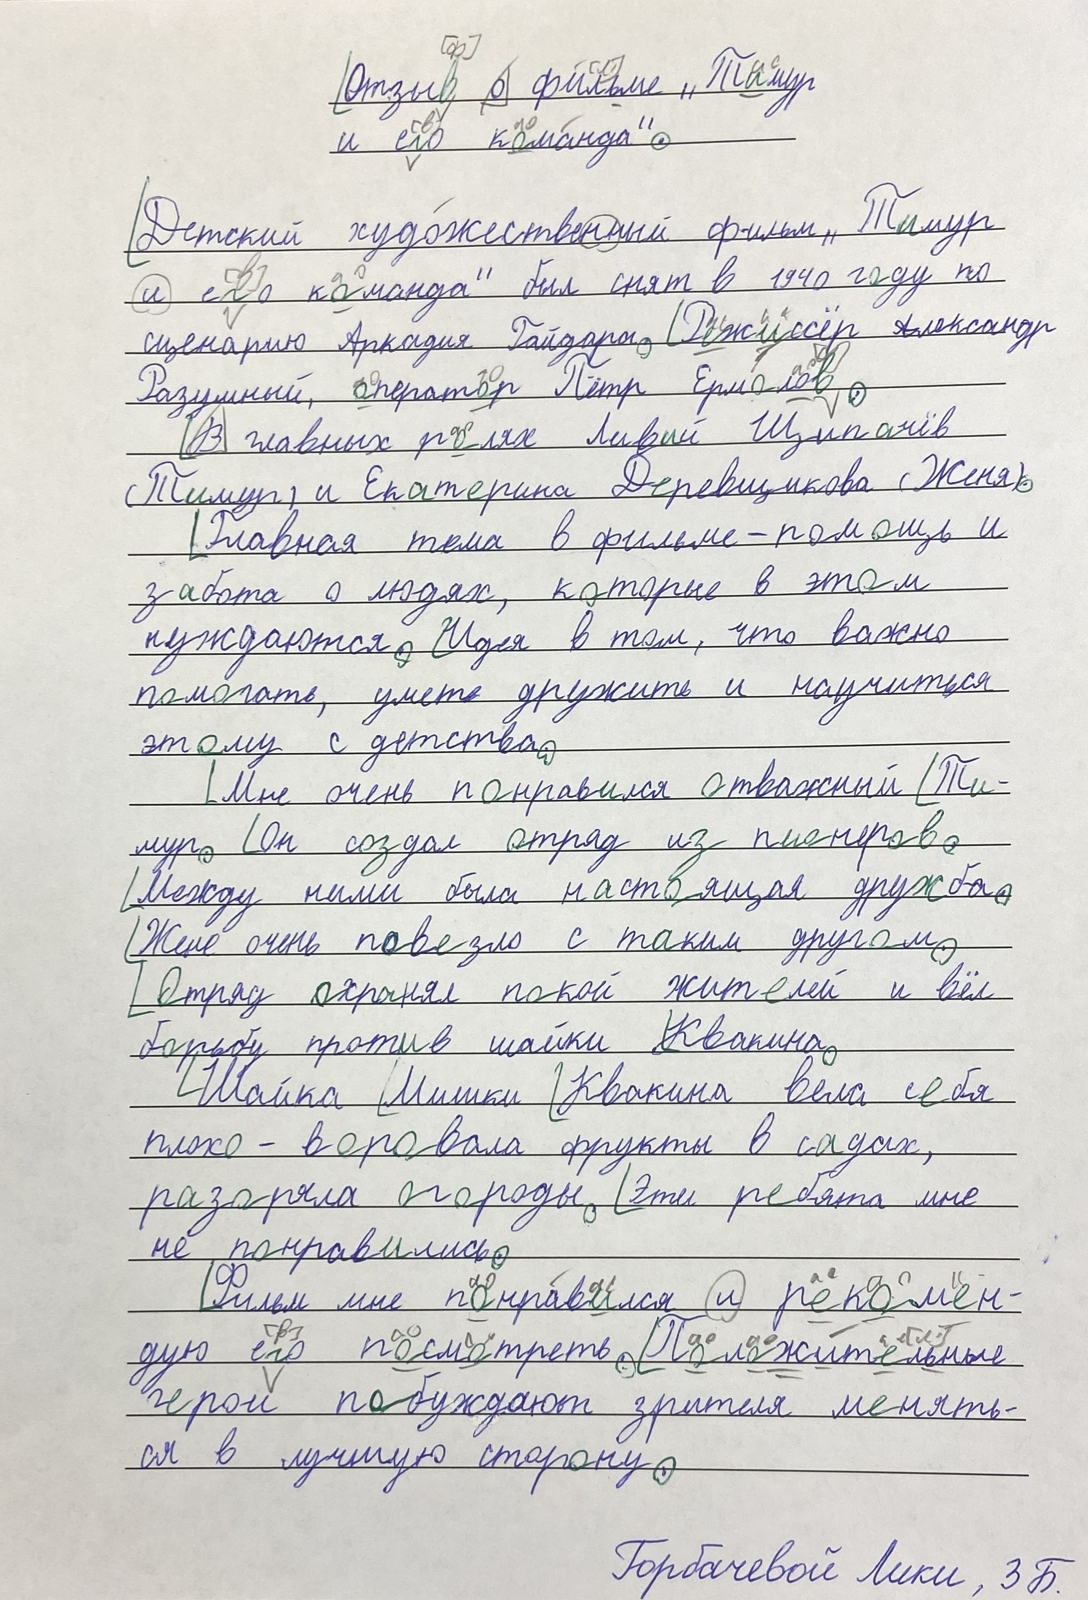 Отзыв о фильме „Тимур
и его команда".
Детский художественный фильм „Тимур
и его команда" был снят в 1940 году по
сценарию Аркадия Гайдара. Режиссёр Александр
Разумный, оператор Пётр Ермолов.
В главных ролях Ливий Щипачёв
(Тимур) и Екатерина Деревщикова (Женя).
Главная тема в фильме – помощь и
забота о людях, которые в этом
нуждаются. Идея в том, что важно
помогать, уметь дружить и научиться
этому с детства.
Мне очень понравился отважный Ти-
мур. Он создал отряд из пионеров.
Между ними была настоящая дружба.
Жене очень повезло с таким другом.
Отряд охранял покой жителей и вёл
борьбу против шайки Квакина.
Шайка Мишки Квакина вела себя
плохо – воровала фрукты в садах,
разоряла огороды. Эти ребята мне
не понравились.
Фильм мне понравился и рекомен-
дую его посмотреть. Положительные
герои побуждают зрителя менять-
ся в лучшую сторону.
Горбачевой Лики, 3 Б.